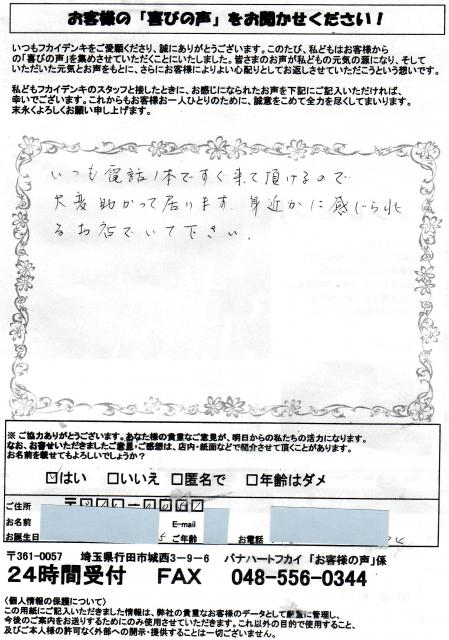 お客様の「喜びの声」をお聞かせください！
いつもフカイデンキをご愛顧くださり、誠にありがとうございます。このたび、私どもはお客様から
の「喜びの声」を集めさせていただくことにいたしました。皆さまのお声が私どもの元気の源になり、そして
いただいた元気とお声をもとに、さらにお客様によりよい心配りとしてお返しさせていただこうという想いです。
私どもフカイデンキのスタッフと接したときに、お感じになられたお声を下記にご記入いただければ、
幸いでございます。これからもお客様お一人ひとりのために、誠意をこめて全力を尽くしてまいります。
末永くよろしくお願い申し上げます。
いつも電話1本ですぐ来て頂けるので
大変助かって居ります。身近かに感じられ
るお店でいて下さい。
※ご協力ありがとうございます。あなた様の貴重なご意見が、明日からの私たちの活力になります。
なお、お寄せいただきましたご意見・ご感想は、店内・紙面などで紹介させて頂くことがあります。
お名前を載せてもよろしいでしょうか？
☑はい □いいえ □匿名で □年齢はダメ
ご住所 〒
お名前 E-mail
お誕生日 ご年齢 お電話
〒361-0057 埼玉県行田市城西3-9-6 パナハートフカイ「お客様の声」係
24時間受付 FAX 048-556-0344
〈個人情報の保護について〉
この用紙にご記入いただきました情報は、弊社の貴重なお客様のデータとして厳重に管理し、
今後のご案内をお送りするためにのみ使用させていただきます。これ以外の目的で使用すること、
及びご本人様の許可なく外部への開示・提供することは一切ございません。